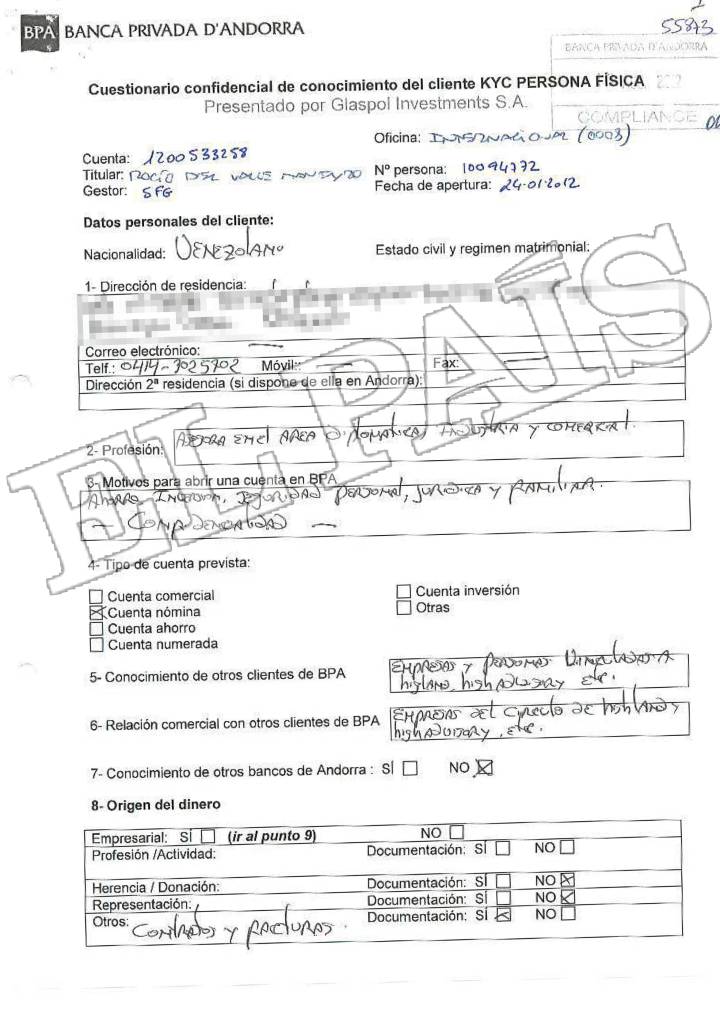 55873
BPA BANCA PRIVADA D'ANDORRA
BANCA PRIVADA D'ANDORRA
Cuestionario confidencial de conocimiento del cliente KYC PERSONA FÍSICA
Presentado por Glaspol Investments S.A.
COMPLIANCE
Oficina: INTERNACIONAL (0003)
Cuenta: 1200533258
Titular: ROCÍO DEL VALLE
Nº persona: 10094772
Gestor: SFG
Fecha de apertura: 24-01-2012
Datos personales del cliente:
Nacionalidad: VENEZOLANO
Estado civil y regimen matrimonial:
1- Dirección de residencia:
Correo electrónico: —
Telf.: 0414-7025702 Móvil:: — Fax: —
Dirección 2ª residencia (si dispone de ella en Andorra):
2- Profesión: ASESORA EN EL AREA DIPLOMATICA, INDUSTRIA Y COMERCIAL.
3- Motivos para abrir una cuenta en BPA
AHORRO, INVERSION, SEGURIDAD PERSONAL, JURIDICA Y FAMILIAR.
— CONFIDENCIALIDAD —
4- Tipo de cuenta prevista:
Cuenta comercial
Cuenta inversión
Cuenta nómina
Otras
Cuenta ahorro
Cuenta numerada
5- Conocimiento de otros clientes de BPA
EMPRESAS Y PERSONAS VINCULADAS A
highland, high ADVISORY etc.
6- Relación comercial con otros clientes de BPA
EMPRESAS DEL CIRCULO DE highland y
high ADVISORY, etc.
7- Conocimiento de otros bancos de Andorra : SÍ NO
8- Origen del dinero
Empresarial: SÍ (ir al punto 9) NO
Profesión /Actividad: Documentación: SÍ NO
Herencia / Donación: Documentación: SÍ NO
Representación: Documentación: SÍ NO
Otros: CONTRATOS Y FACTURAS. Documentación: SÍ NO
EL PAÍS